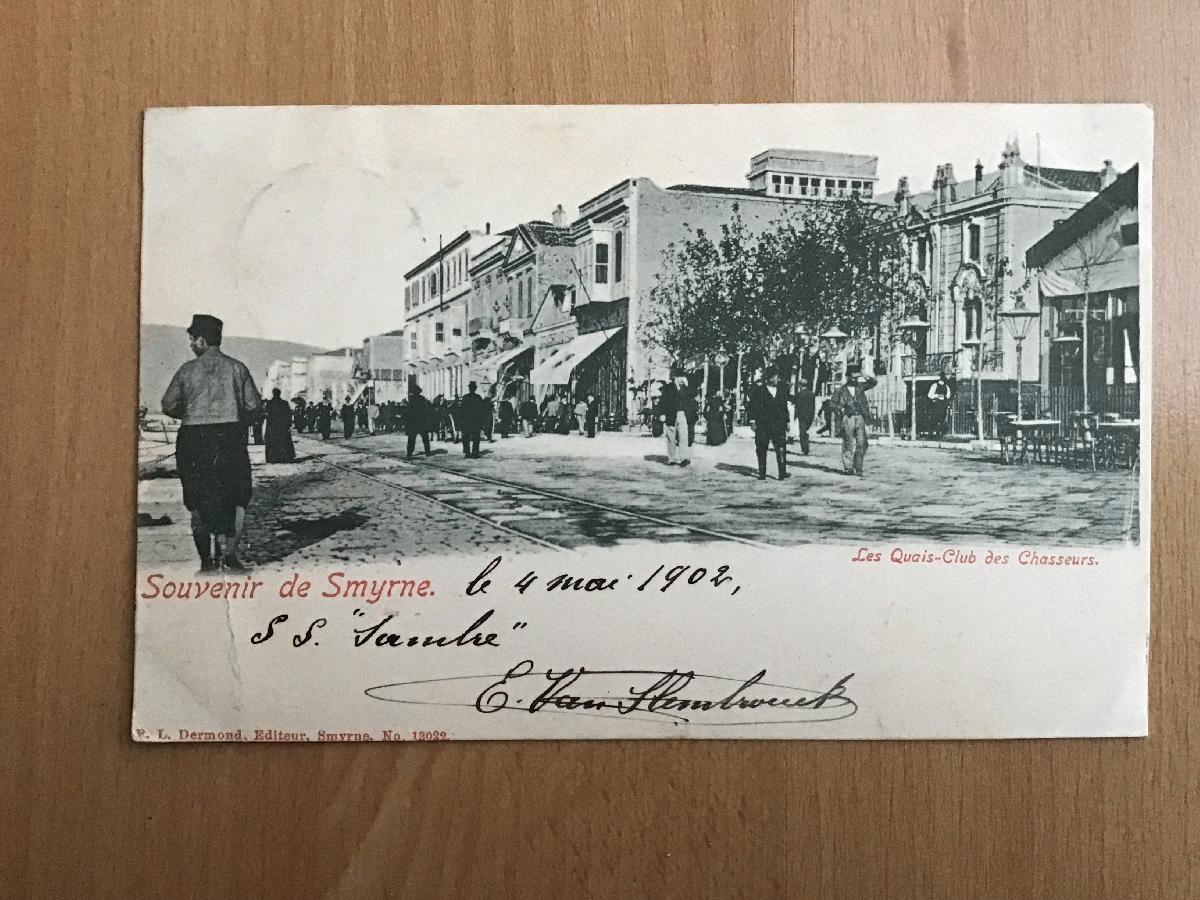 Les Quais-Club des Chasseurs.
Souvenir de Smyrne. le 4 mai 1902,
S S. "Sambre"
E. Van
R. L. Dermond, Editeur, Smyrne, No. 13022.